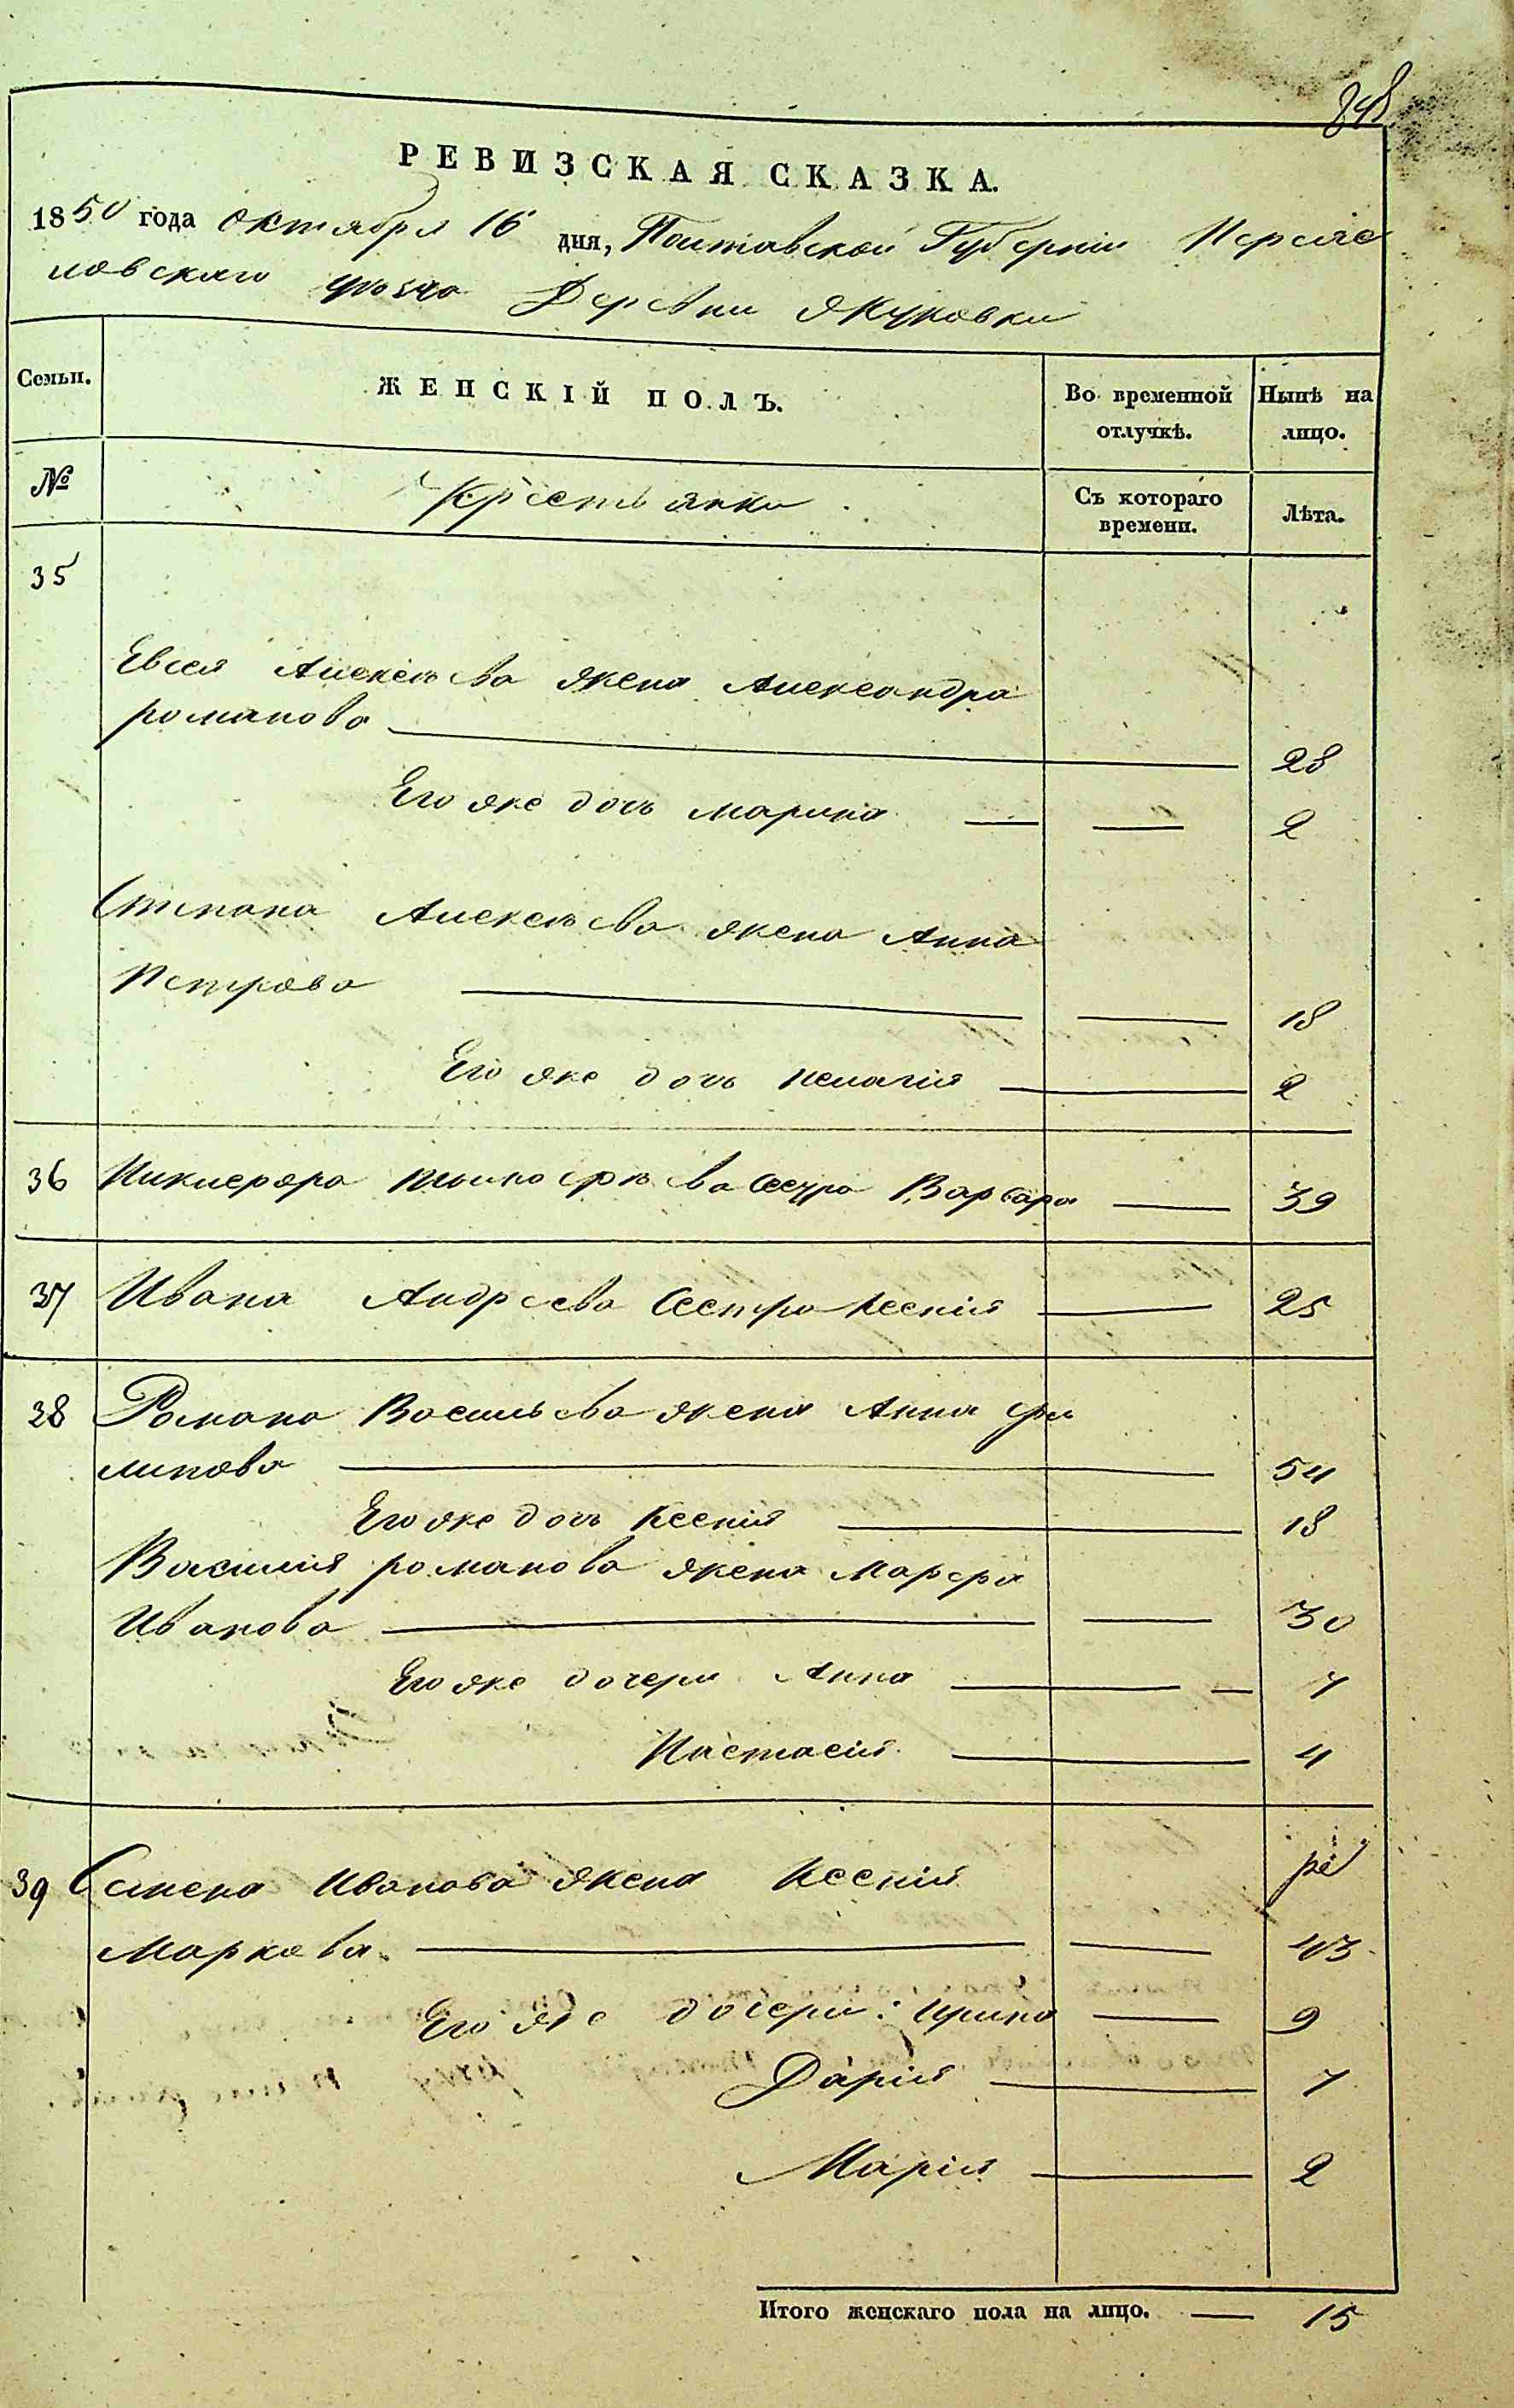 848
РЕВИЗСКАЯ СКАЗКА.
1850 года Октября 16 дня, Полтавской Губерніи Переяс
ловскаго уѣзда Деревни Якуковки
Семьи. ЖЕНСКІЙ ПОЛЪ. Во временной отлучкѣ. Нынѣ на лицо.
№ Крестьянки Съ котораго времени. Лѣта.
35
Евсея Алексѣева жена Александра
романова 28
Его же дочь марина 2
Степана Алексѣева жена Анна
Петрова 18
Его же дочь пелагія 2
36 Никифора сестра Варвара 39
37 Ивана Андреева Сестра Ксенія 25
38 Романа Васильева жена Анна фи
липова 54
Его же дочь Ксенія 18
Василія романова жена Марфа
Иванова 30
Его же дочери Анна 7
Настасія 4
39 Семена Иванова жена Ксенія
Маркова 43
Его же дочери: Ирина 9
Дарія 7
Марія 2
Итого женскаго пола на лицо. 15